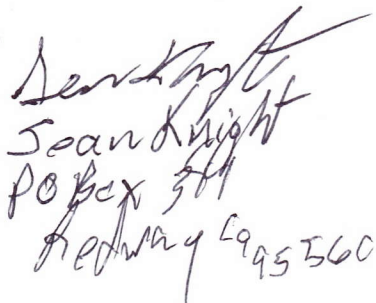 Sean Knight
Sean Knight
PO Box
Redway Ca 95560